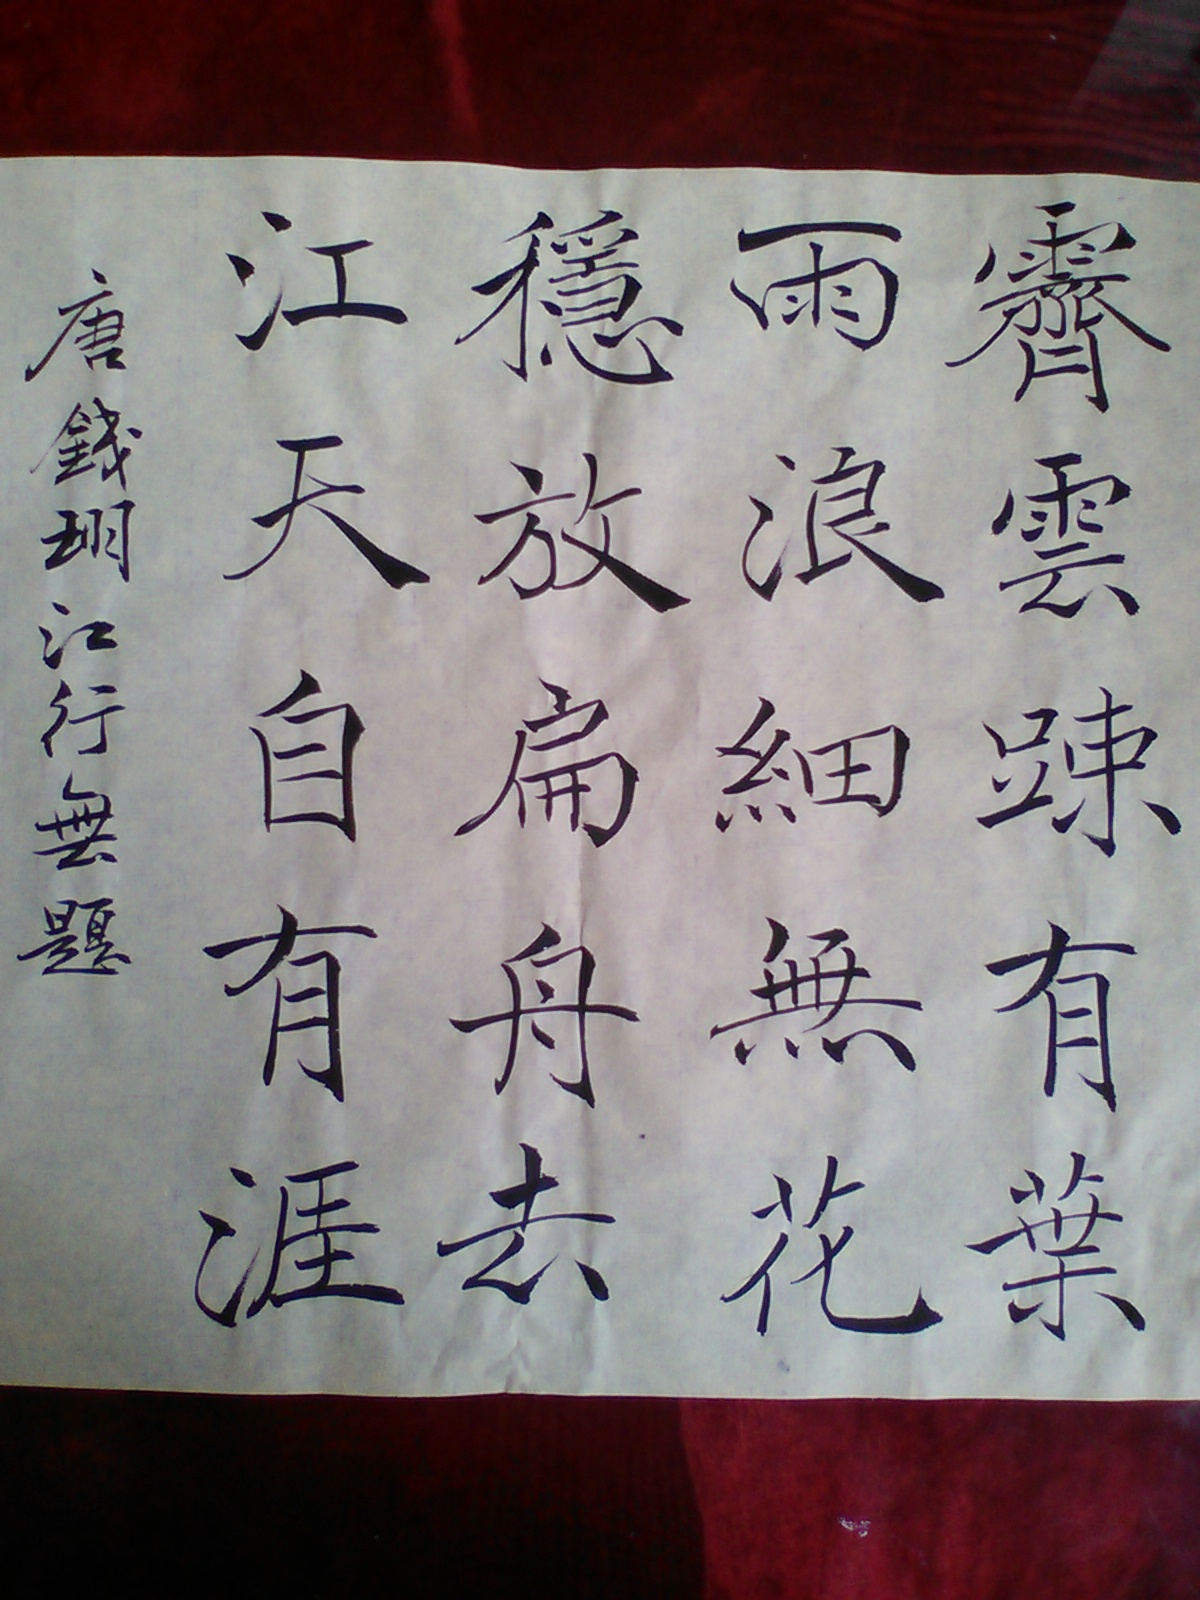 霽雲踈有葉
雨浪細無花
穩放扁舟去
江天自有涯
唐錢珝江行無題